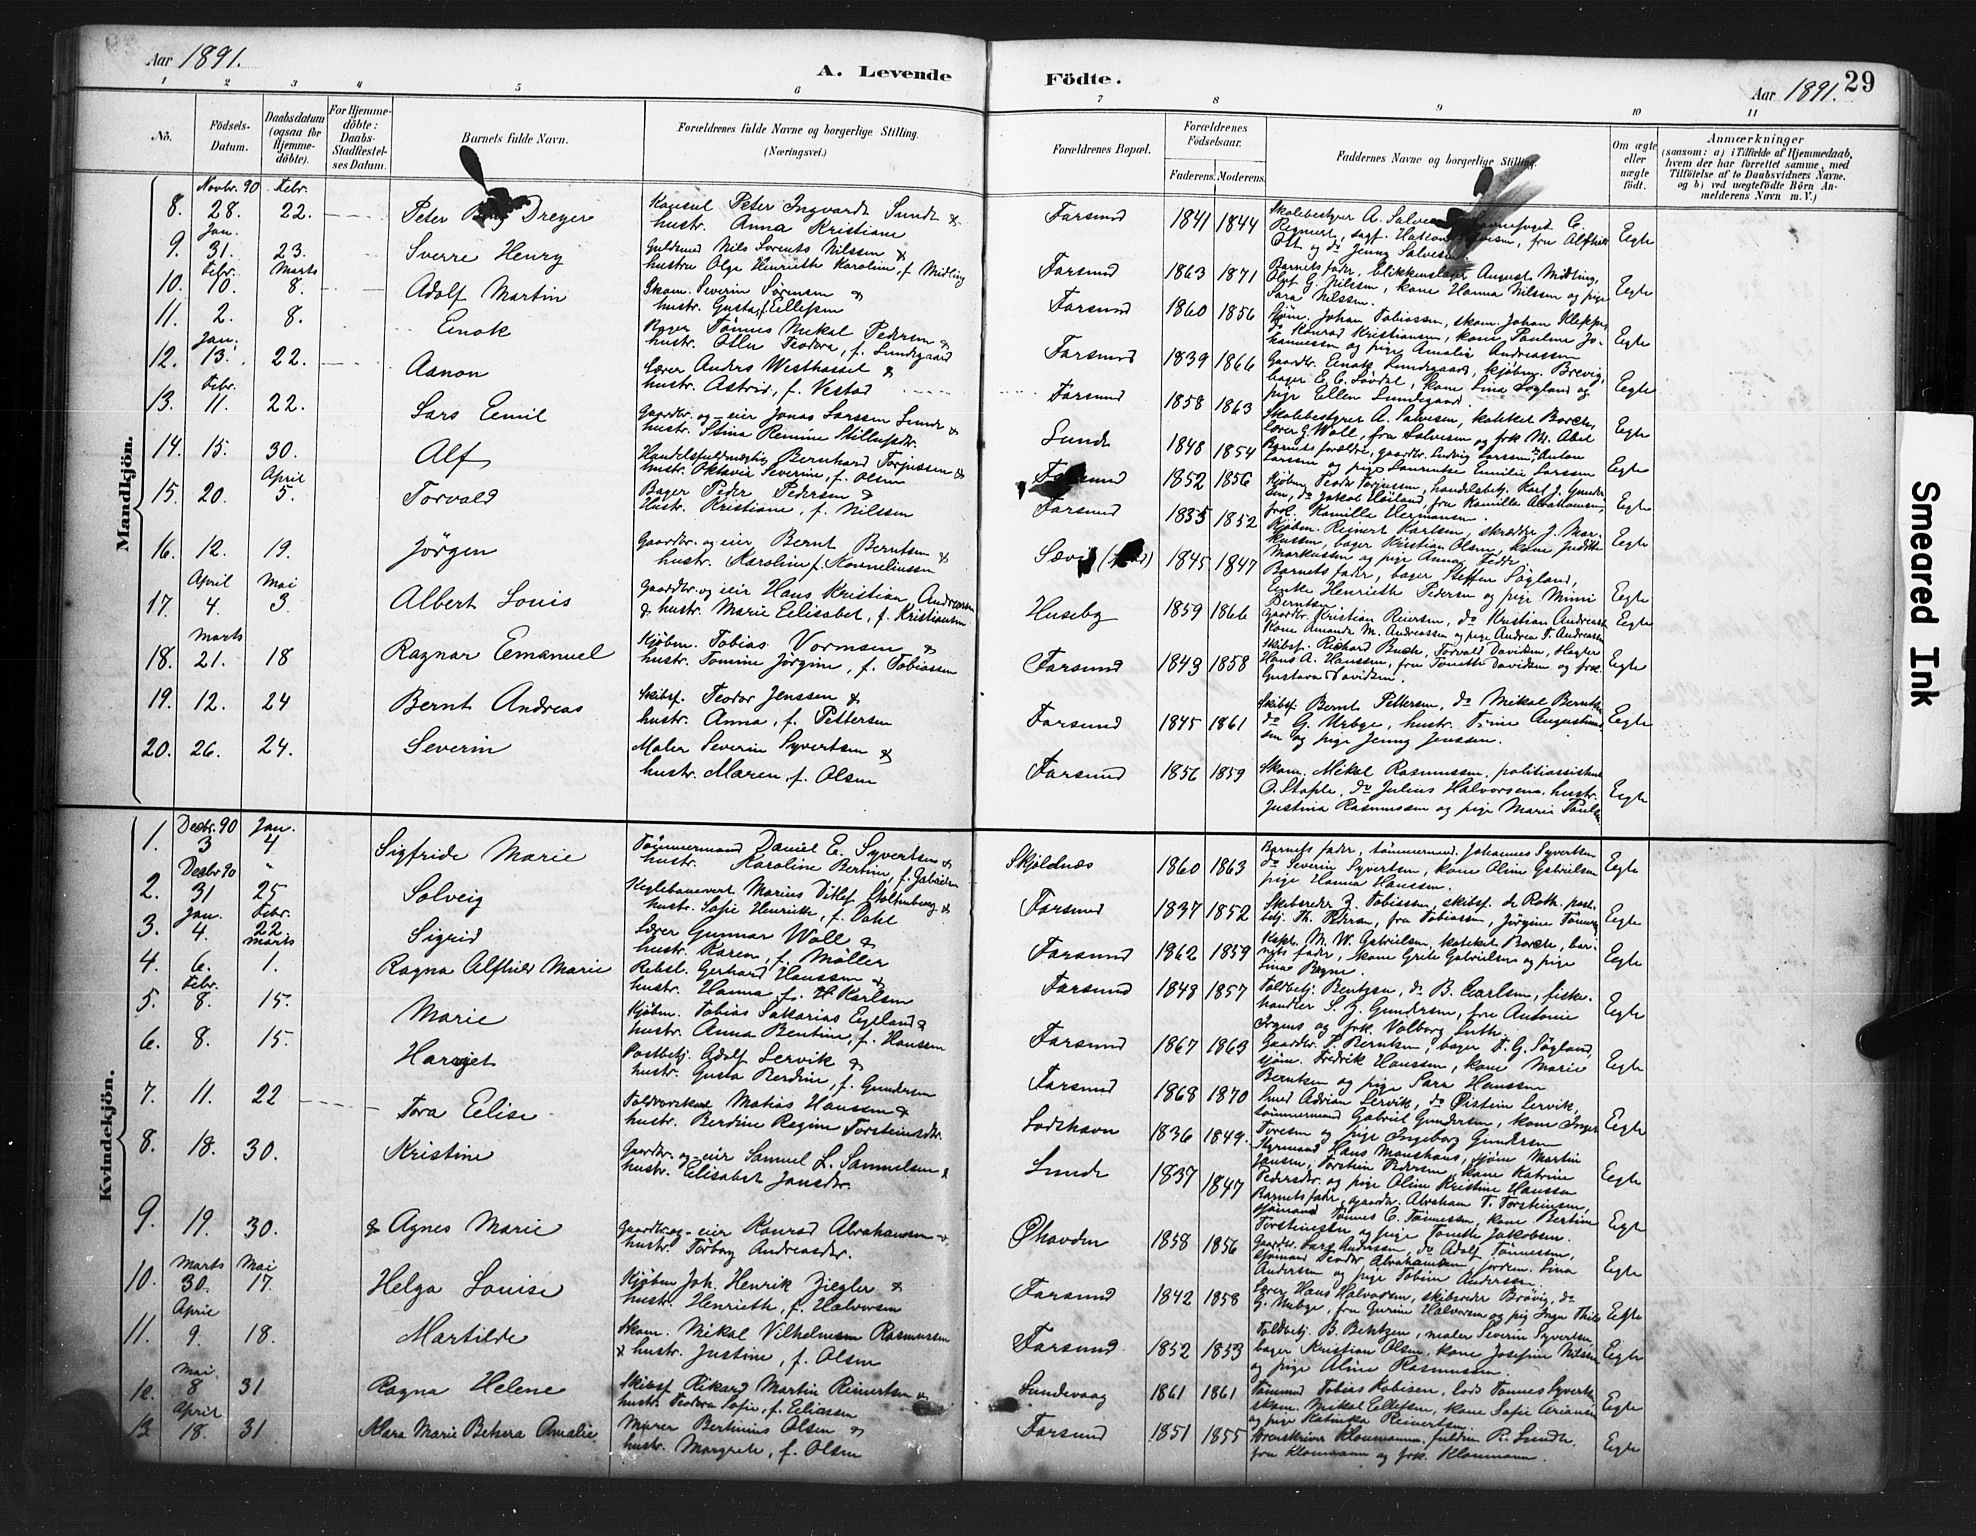 Aar 1891.
A. Levende Födte.
Aar 1891.
29
1 2 3 4 5 6 7 8 9 10 11
No.
Födsels-Datum.
Daabsdatum (ogsaa for Hjemmedöbte).
For Hjemmedöbte: Daabs-Stadfæstelses Datum.
Barnets fulde Navn.
Forældrenes fulde Navne og borgerlige Stilling.
(Næringsvei.)
Forældrenes Bopæl.
Forældrenes Födselsaar.
Faderens. Moderens.
Faddernes Navne og borgerlige Stilling.
Om ægte eller uægte födt.
Anmærkninger
(saasom: a) i Tilfælde af Hjemmedaab, hvem der har forrettet samme, med Tilföielse af to Daabsvidners Navne, og b) ved uægtefödte Börn Anmelderens Navn m.V.)
Mandkjön.
8. Novbr. 90 28. Febr. 22. Peter Dreyer
Konsul Peter Ingvardt Sunde &
hustr. Anna Kristiane
Farsund 1841 1844 Eegte
9. Jan. 31. 23. Sverre Henry
Guldsmed Nils Lorents Nilssen &
hustru Olga Henriette Karoline, f. Midling
Farsund 1863 1871
Barnets fader, blikkenslager August Midling,
Olaf G. Nilssen, kone Hanna Nilssen og pige
Sara Nilssen.
Eegte
10. Febr. 10. Marts 8. Adolf Martin
Skom. Severin Sørensen &
hustr. Gusta, f. Ellefsen
Farsund 1860 1856
Sjøm. Johan Tobiassen, skom. Johan Kleppe,
do Konrad Kristiansen, kone Pauline Johannessen og pige Amalie Andreassen
Eegte
11. 2. 8. Enok
Tønnes Mikal Pedersen &
hustr. Otlu Teodora, f. Lundegaard
Farsund 1839 1866
Gaardbr. Enok Lundegaard, kjøbm. Brevig,
bager E. C. Løvdal, kone Lina Søgland og
pige Ellen Lundegaard.
Eegte
12. Jan. 13. 22. Aanon
Lærer Anders Westhassel &
hustr. Astrid, f. Vestad
Farsund 1858 1863
Skolebestyrer A. Salvesen, kateket Borch,
lærer G. Woll, fru Salvesen og frk. M. Abel
Eegte
13. Febr. 11. 22. Lars Eemil
Gaardbr. og -eier Jonas Larssen Sunde &
hustr. Stina Remine Stillufsdr.
Lunde 1848 1854
Barnets forældre, gaardbr. Ludvig Larssen, Anton
Larssen og pige Laurentse Emilie Larssen
Eegte
14. 15. 30. Alf
Handelsfuldmægtig Bernhard Torjussen &
hustr. Oktavie Severine, f. Olsen
Farsund 1852 1856
Kjøbm. Teodor Torjussen, handelsbetj. Karl J. Gundersen, do Jakob Høiland, fru Kamilla Abrahamsen,
frøl. Kamille Hermansen.
Eegte
15. 20. April 5. Torvald
Bager Peder Pedersen &
hustr. Kristiane, f. Nilssen
Farsund 1835 1852
Kjøbm. Reinert Karlsen, skrædder J. Markussen, bager Kristian Olsen, kone Judithe
Markussen og pige Anna Fedde
Eegte
16. 12. 19. Jørgen
Gaardbr. og eier Bernt Berntsen &
hustr. Karoline f. Korneliussen
1845 1847
Barnets fader, bager Steffen Søgland,
Enke Henriette Pedersen og pige Mimi
Berntsen
Eegte
17. April 4. Mai 3. Albert Louis
Gaardbr. og eier Hans Kristian Andreassen
& hustr. Marie Eelisabet, f. Kristiansen
Huseby 1859 1866
Gaardbr. Kristian Reiersen, do Kristian Andreassen
Kone Amanda M. Andreassen og pige Andrea T. Andreassen
Eegte
18. Marts 21. 18 Ragnar Eemanuel
Kjøbm. Tobias Vormsen &
hustr. Tomine Jørgine, f. Tobiassen
Farsund 1843 1858
Skibsf. Richard Buch, Torvald Davidsen, Hagter
Hans A. Hanssen, fru Tomette Davidsen og frk.
Gustava Davidsen.
Eegte
19. 12. 24 Bernt Andreas
Skibsf. Teodor Jenssen &
hustr. Anna, f. Pettersen
Farsund 1845 1861
Skibsf. Bernt Pettersen, do Mikal Berntsen
do G. Urbye, hustr. Trine Augustinussen og pige Jenny Jenssen.
Eegte
20. 26. 24. Severin
Maler Severin Syvertsen &
hustr. Maren, f. Olsen
Farsund 1856 1859
Skom. Mikal Rasmussen, politiassistent
O. Stople, do Julius Halvorsen, hustr.
Justina Rasmussen og pige Marie Paulsen
Eegte
Kvindekjön.
1. Decbr. 90 3 Jan. 4 Sigfride Marie
Tömmermand Daniel E. Syvertsen &
hustr. Karoline Bertine, f. Gabrielsen
Skjoldnæs 1860 1863
Barnets fader, tömmermand Johannes Syvertsen
do Severin Syvertsen, kone Aline Gabrielsen
pige Hanna Hanssen.
Eegte
2. Decbr 90 31 " 25 Solveig
Keglebanevert Marius Ditlef Stoltenberg &
hustr. Sofie Henrikke, f. Dahl
Farsund 1837 1852
Skibsreder Z. Tobiassen, skibsf. de Roth, postbetj. Th. Pedersen, fru Tobiassen, Jørgine Tönnes
Eegte
3. Jan. 4. Febr. 22 Sigrid
Lærer Gunnar Woll &
hustr. Karen, f. Møller
Farsund 1862 1859
Kapt. M. W. Gabrielsen, kateket Borch, barnets fader, kone Grete Gabrielsen og pige
Lina Bøgne.
Eegte
4. 6. Marts 1. Ragna Alfhild Marie
Rebsl. Gerhard Hanssen &
hustr. Hanna f. Karlsen
Farsund 1849 1857
Toldbetj. Bentzen, do B. Carlsen, fiskehandler S. Z. Gundersen, fru Antonie
Jrgens og frk. Valborg Luth.
Eegte
5. Febr. 8. 15. Marie
Kjøbm. Tobias Sakarias Egeland &
hustr. Anna Bentine, f. Hanssen
Farsund 1867 1863
Gaardbr. P. Berntsen, bager F. G. Søgland,
sjøm. Fredrik Hanssen, kone Marie
Berntsen og pige Sara Hanssen
Eegte
6. 8. 15. Harriet
Postbetj. Adolf Lervik &
hustr. Gusta Berdine, f. Gundersen
Farsund 1868 1870
Smed Adrian Lervik, do Øistein Lervik,
tömmermand Gabriel Gundersen, kone Inger
Toresen og pige Ingeborg Gundersen
Eegte
7. 11. 22 Tora Eelise
Toldoverskand Matias Hanssen &
hustr. Berdine Regine Torsteinsdr.
Lodshavn 1836 1849.
Styrmand Hans Monshaus, sjøm. Martin
Jansen, Torstein Pedersen, kone Katrine
Pedersdr. og pige Aline Kristine Hanssen
Eegte
8. 18. 30. Kristine
Gaardbr. og -eier Samuel L. Samuelsen &
hustr. Elisabet Jansdr.
Lunde 1837 1847
Barnets fader, gaardbr. Abraham T. Torsteinsen,
sjømand Tönnes C. Tönnessen, kone Bertine
Torsteinsen og pige Tomette Jakobsen.
Eegte
9. 19. 30. Agnes Marie
Gaardbr. og -eier Konrad Abrahamsen &
hustr. Torborg Andreasdr.
Ohavden 1858 1856
Gaardbr. Lars Andersen, do Adolf Tönnessen,
sjømand Teodor Abrahamsen, jordem. Lina
Andersen og pige Tobine Andersen.
Eegte
10. Marts 30. Mai 17. Helga Louise
Kjøbm. Joh. Henrik Ziegler &
hustr. Henriette, f. Halvorsen
Farsund 1842 1858
Lærer Hans Halvorsen, skibsreder Brøvig, do
G. Urbye, fru Gurine Halvorsen og pig. Inga Thiis
Eegte
11. April 9. 18. Martilde
Skom. Mikal Vilhelmsen Rasmussen
& hustr. Justine, f. Olsen
Farsund. 1852 1853
Toldbetj. B. Bentzen, maler Severin Syvertsen
bager Kristian Olsen, kone Josefine Nilssen
og pige Aline Rasmussen.
Eegte
12. Mai 8 31 Ragna Helene
Skibsf. Rikard Martin Reinertsen &
hustr. Teodora Sofie, f. Eeliassen
Lundevaag 1861 1861
Tömmd Tobias Kobisen, lods Tönnes Syverts
skom. Mikal Ellefsen, kone Sofie Ariansen
og pige Katinka Reinertsen.
Eegte
13. April 18. 31 Klara Marie Betzera Amalie
Murer Bertinius Olsen &
hustr. Margrete, f. Olsen
Farsund 1851 1855
Sorenskriver Kloumann, fuldm. R. Sunde.
fru Kloumann og frk. Kloumann.
Eegte
Smeared Ink